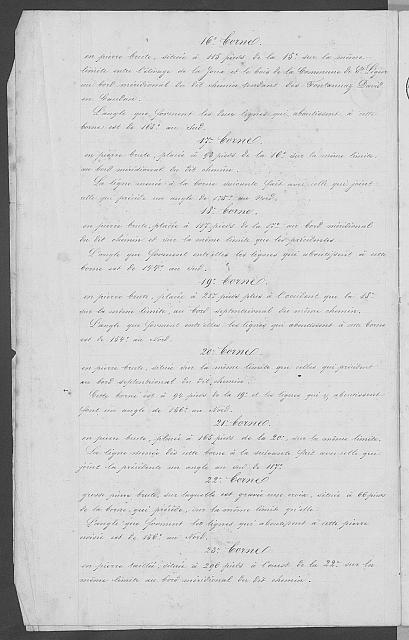 16e Borne.
en pierre brute, située à 115 pieds de la 15e sur la même
limite entre l'alpage de la Joux et le bois de la Commune de St. Légier
au bord méridional du dit chemin tendant des Fontannaz David
en Caudoz.
L'angle que forment les deux lignes qui aboutissent à cette
borne est de 165° au Sud.
17e Borne.
en pierre brute, placée à 92 pieds de la 16e sur la même limite
au bord méridional du dit chemin.
La ligne menée à la borne suivante fait avec celle qui joint
celle qui précède un angle de 175° au Sud.
18e Borne.
en pierre brute, placée à 117 pieds de la 17e au bord méridional
du dit chemin et sur la même limite que les précédentes.
L'angle que forment entr'elles les lignes qui aboutissent à cette
borne est de 144° au Sud.
19e Borne.
en pierre brute, placée à pieds plus à l'occident que la 18e
sur la même limite, au bord septentrional du même chemin.
L'angle que forment entr'elles les lignes qui aboutissent à cette borne
est de 154° au Nord.
20e Borne.
en pierre brute, située sur la même limite que celles qui précèdent
au bord septentrional du dit chemin.
Cette borne est à 94 pieds de la 19e et les lignes qui y aboutissent
font un angle de 156° au Nord.
21e Borne.
en pierre brute, placée à 165 pieds de la 20e, sur la même limite.
La ligne menée dès cette borne à la suivante fait avec celle qui
joint la précédente un angle au Sud de 117°
22e Borne
grosse pierre brute, sur laquelle est gravée une croix, située à 66 pieds
de la borne qui précède, sur la même limite qu'elle.
L'angle que forment les lignes qui aboutissent à cette pierre
est de 156° au Nord.
23e Borne
en pierre taillée, située à 206 pieds à l'ouest de la 22e sur la
même limite au bord méridional du dit chemin.